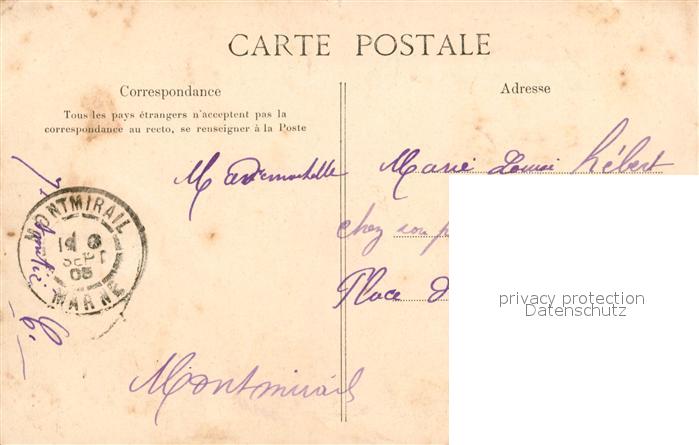 CARTE POSTALE
Correspondance
Tous les pays étrangers n'acceptent pas la
correspondance au recto, se renseigner à la Poste
Adresse
Mademoiselle Marie Louise Hébert
chez son
Place
Montmirail
MONTMIRAIL
SEPT
05
MARNE
privacy protection
Datenschutz